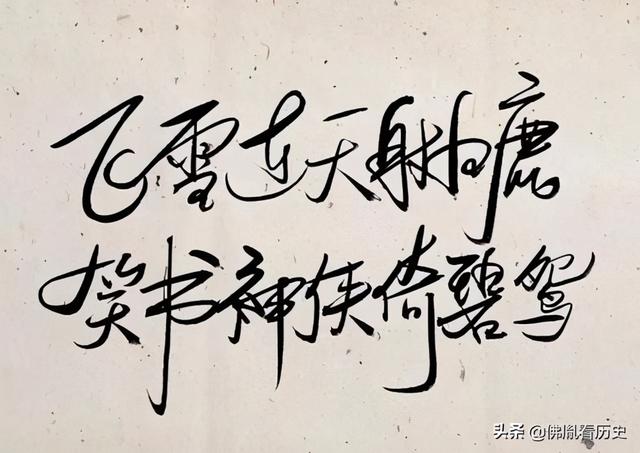 飞雪连天射白鹿
笑书神侠倚碧鸳
头条 @佛胤看历史